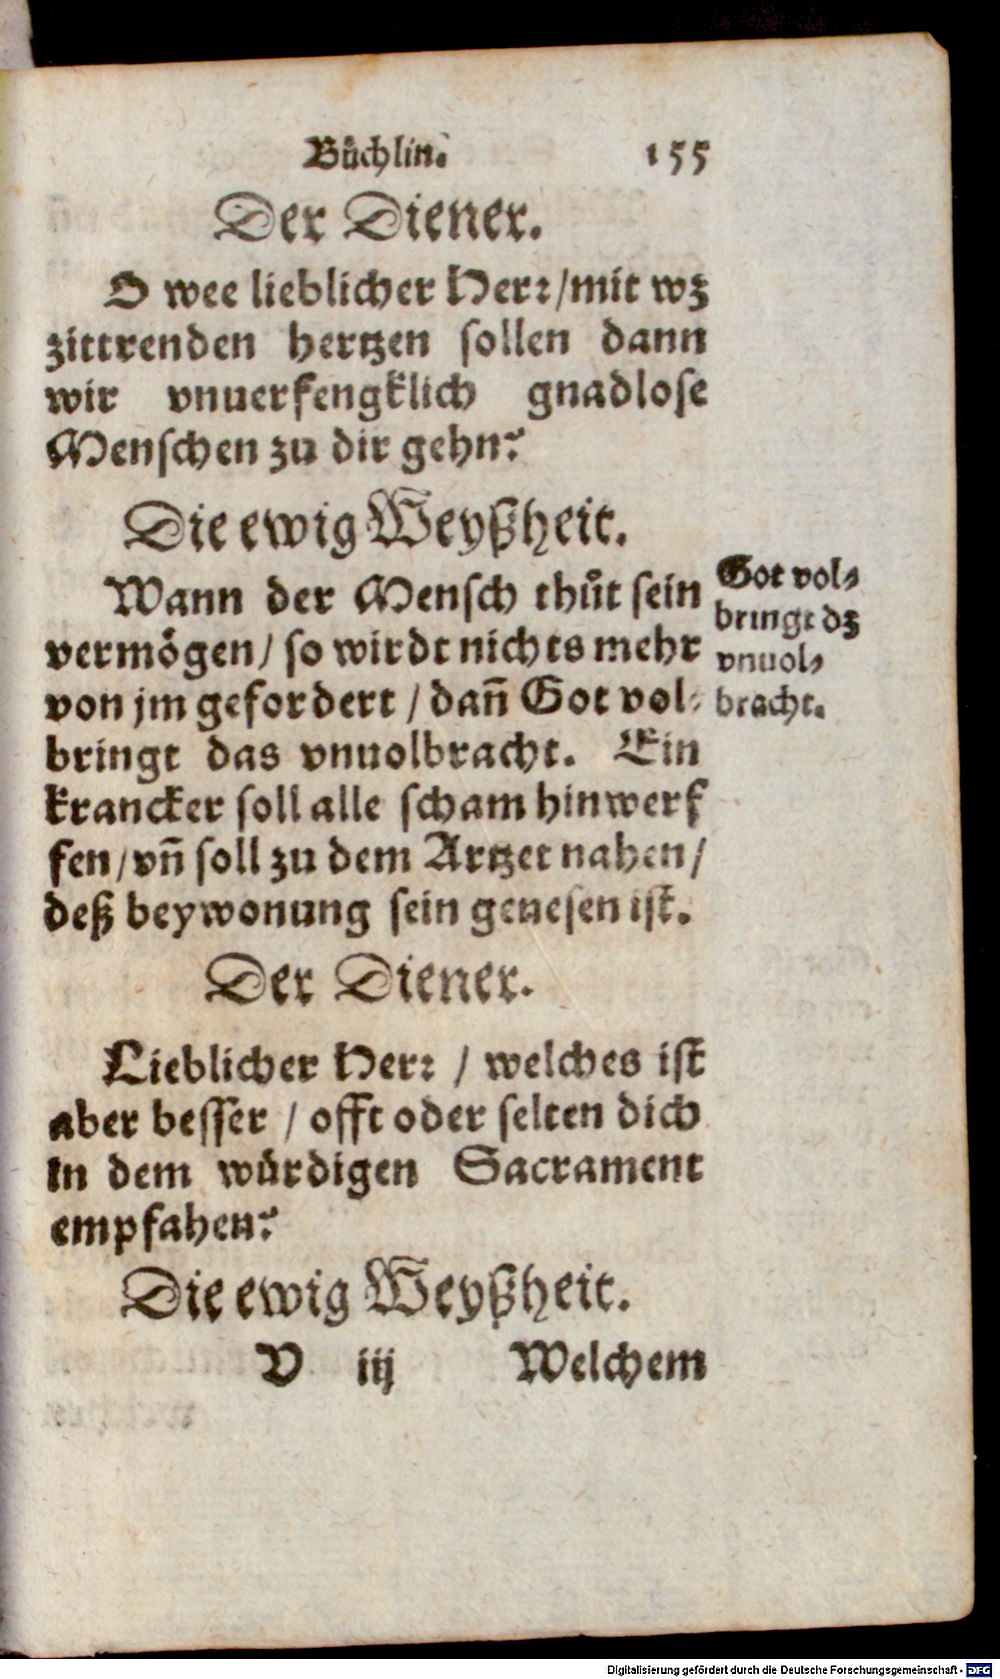 Bůchlin. 155
Der Diener.
O wee lieblicher Herꝛ/mit wz
zittrenden hertzen sollen dann
wir vnuerfengklich gnadlose
Menschen zu dir gehn?
Die ewig Weyßheit.
Wann der Mensch thůt sein
vermögen/ so wirdt nichts mehr
von jm gefordert / dañ Got vol⸗
bringt das vnuolbracht. Ein
krancker soll alle scham hinwerf
fen/vñ soll zu dem Artzet nahen/
deß beywonung sein genesen ist.
Got vol⸗
bringt dz
vnuol⸗
bracht.
Der Diener.
Lieblicher Herꝛ / welches ist
aber besser / offt oder selten dich
in dem würdigen Sacrament
empfahen?
Die ewig Weyßheit.
V iij Welchem
Digitalisierung gefördert durch die Deutsche Forschungsgemeinschaft - DFG